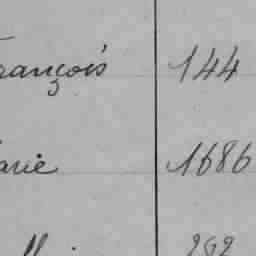 rançois 144
arie 1686
262